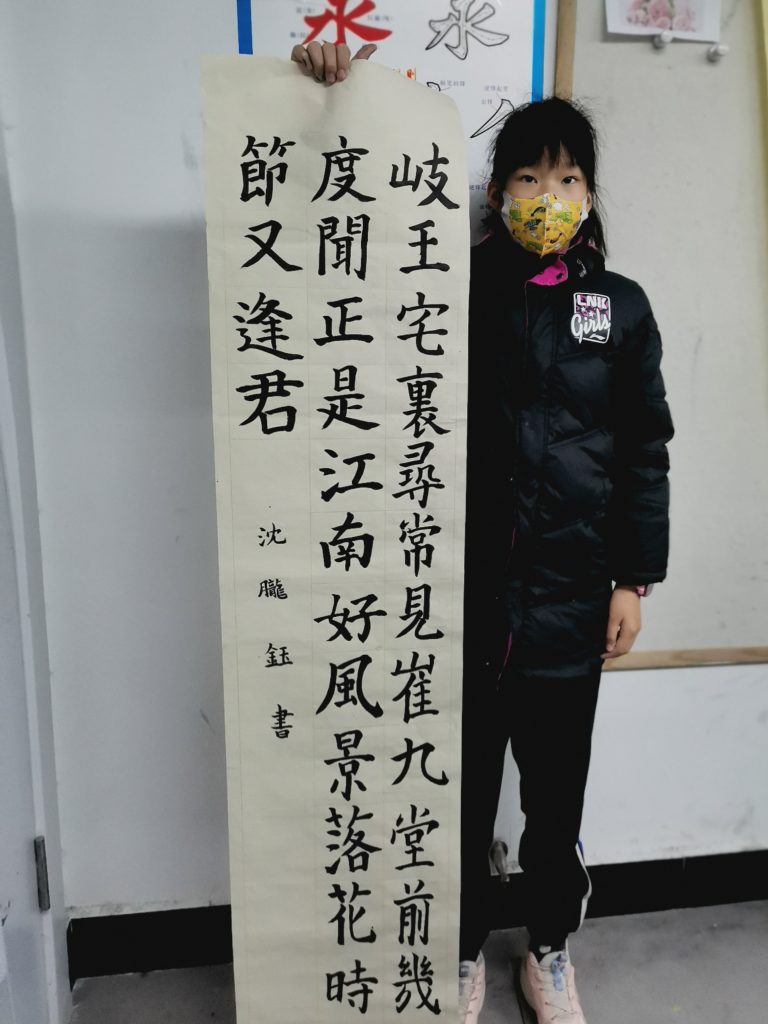 岐王宅裏尋常見崔九堂前幾
度聞正是江南好風景落花時
節又逢君
沈朧鈺書
永
永
LNK
Girls